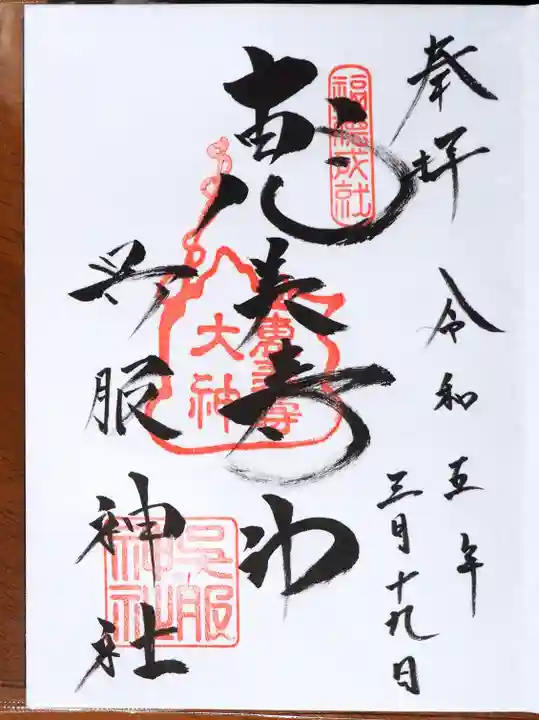 奉拝
令和五年
三月十九日
福徳成社
恵美寿神
恵美寿
大神
呉服神社
呉服
神社